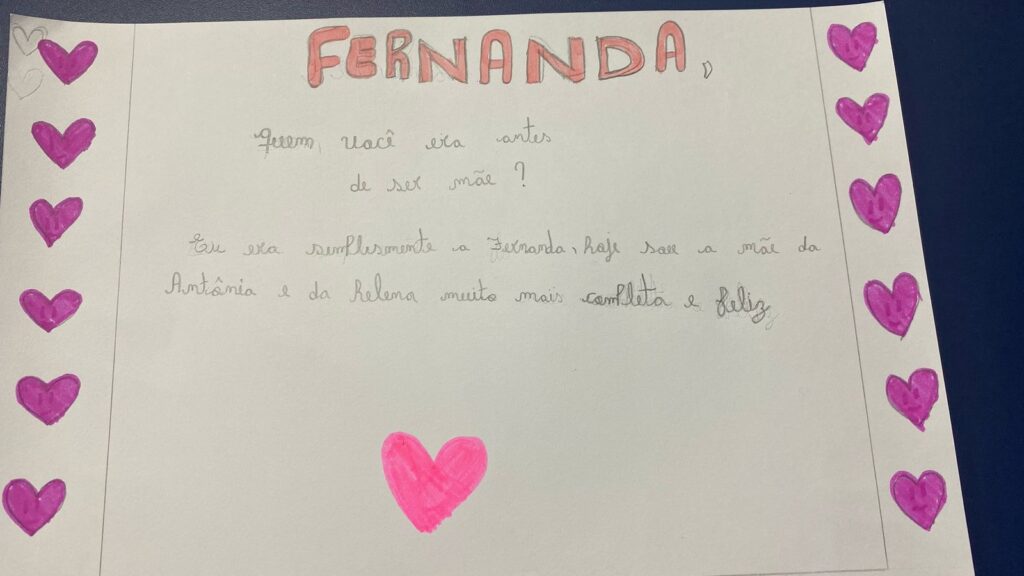 FERNANDA,
Quem, você era antes
de ser mãe?
Eu era simplesmente a Fernanda, hoje sou a mãe da
Antônia e da Helena muito mais completa e feliz